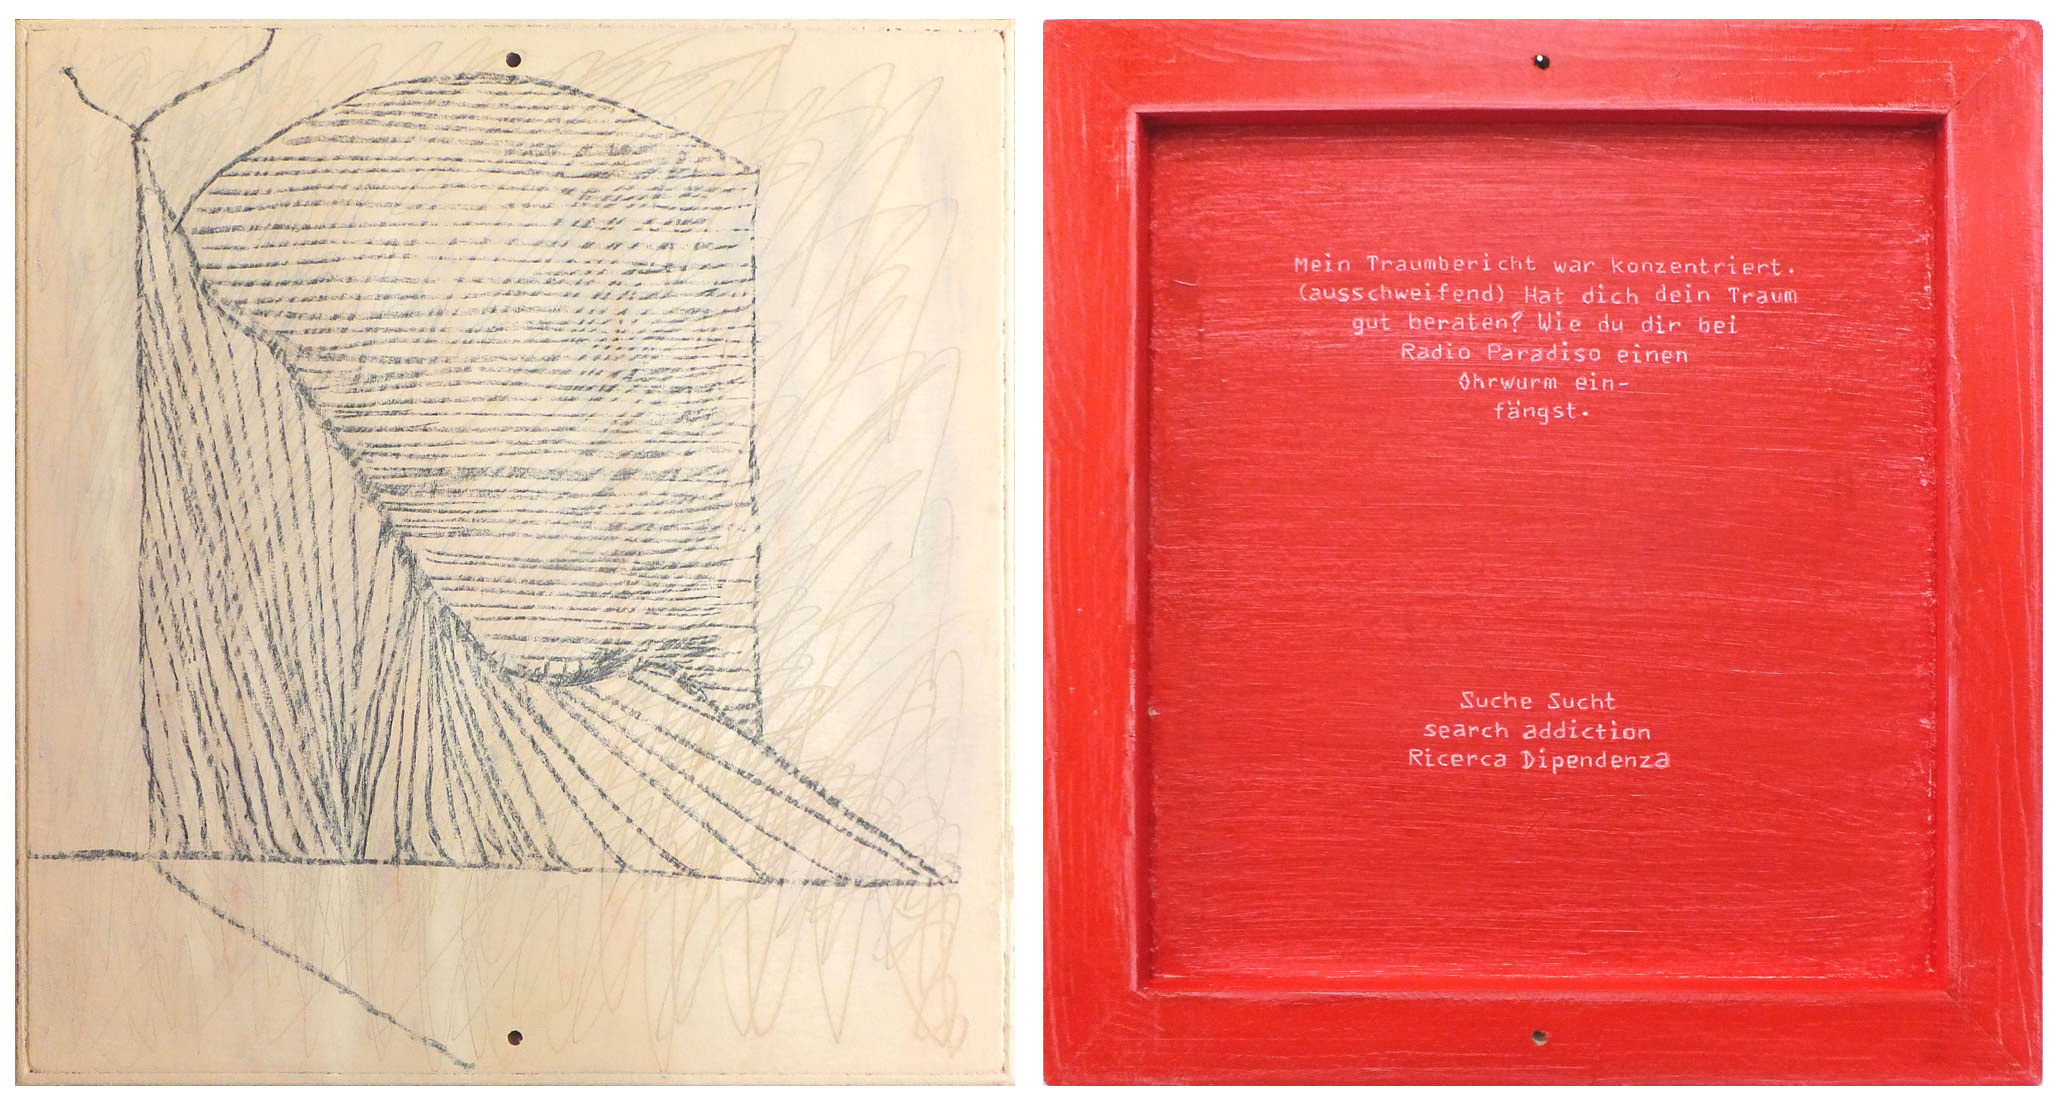 Mein Traumbericht war konzentriert.
(ausschweifend) Hat dich dein Traum
gut beraten? Wie du dir bei
Radio Paradiso einen
Ohrwurm ein-
fängst.
Suche Sucht
search addiction
Ricerca Dipendenza